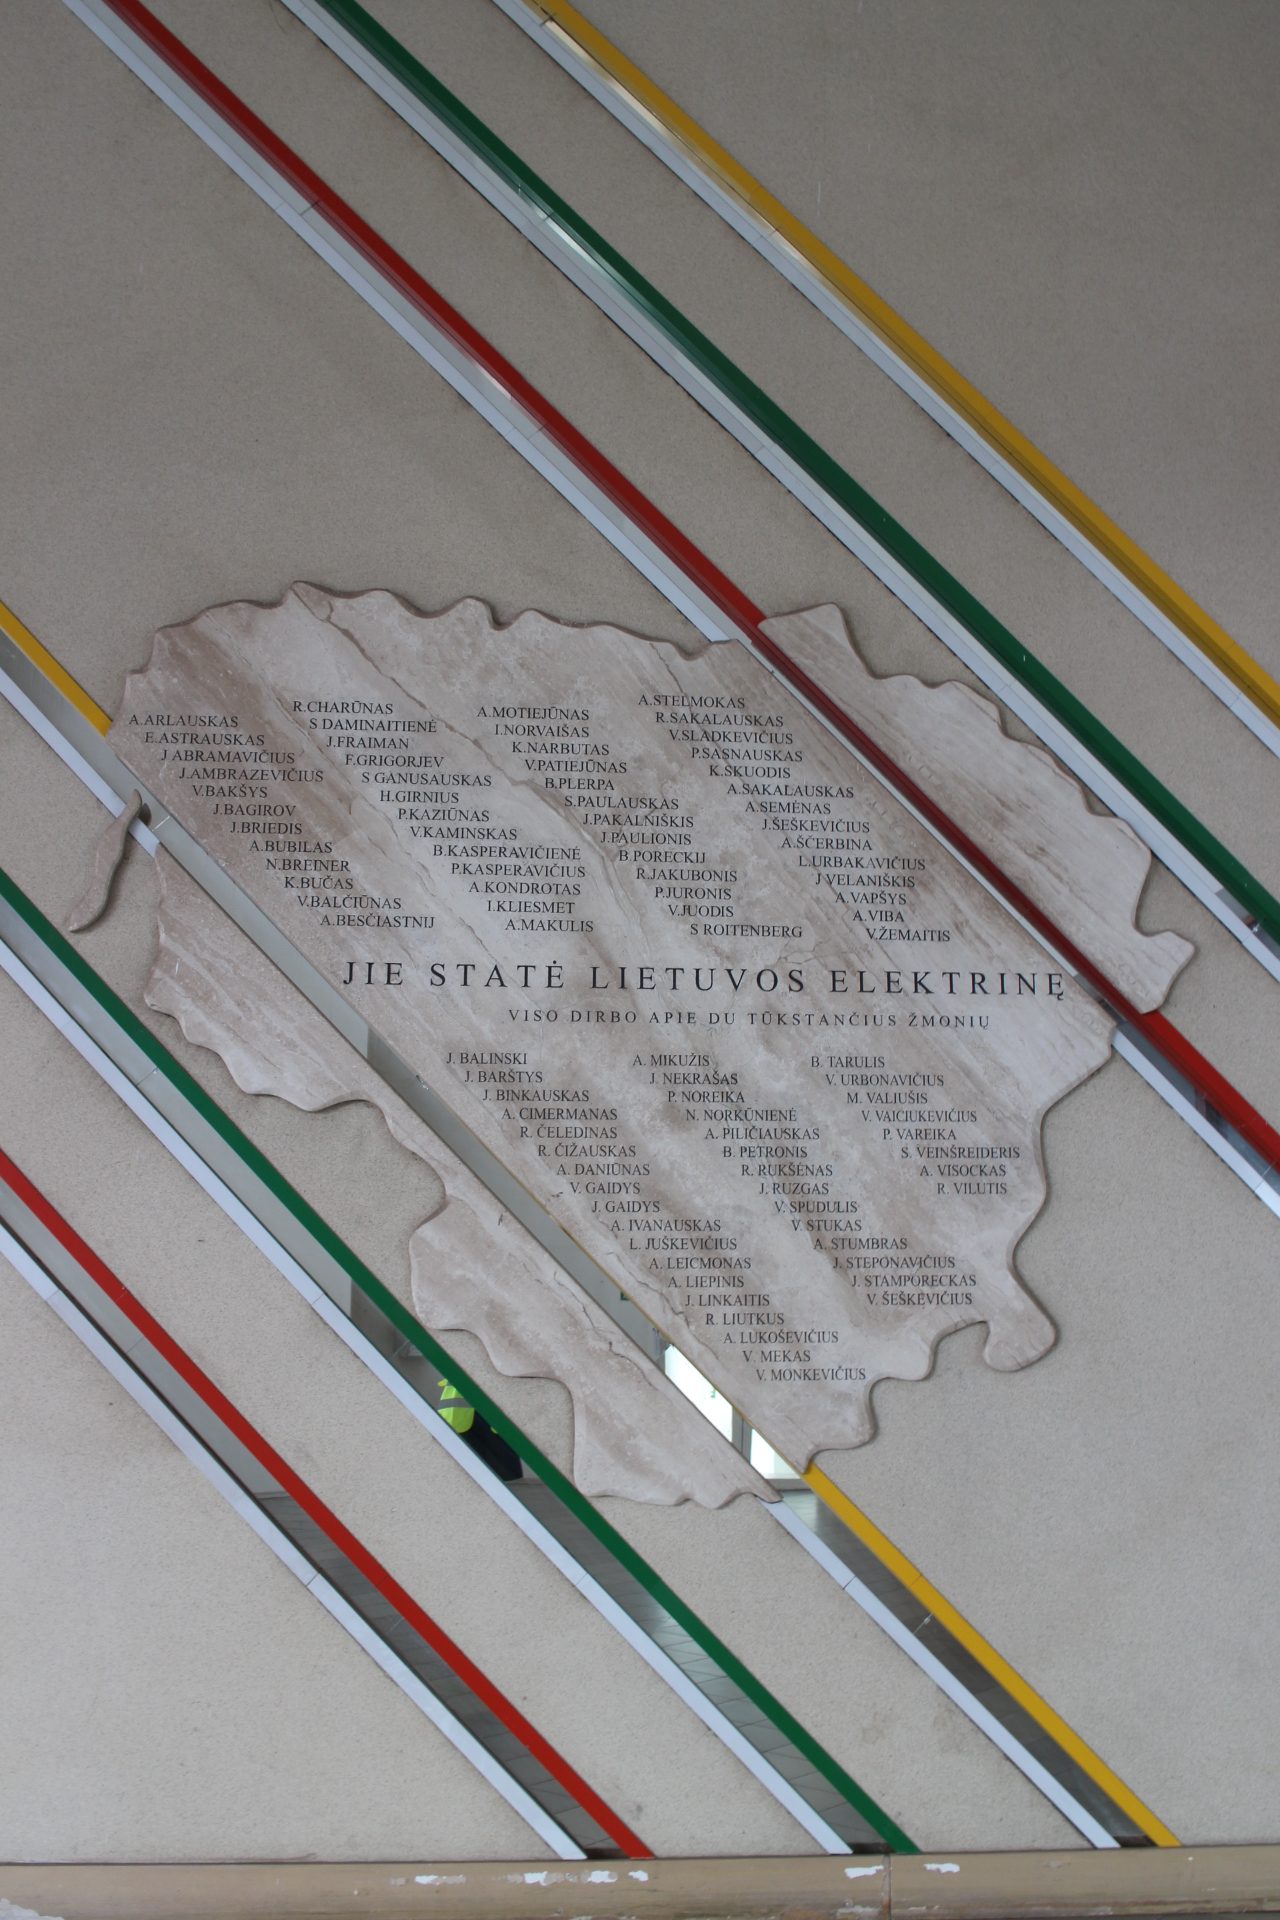 A.ARLAUSKAS
E.ASTRAUSKAS
J ABRAMAVIČIUS
J.AMBRAZEVIČIUS
V.BAKŠYS
J.BAGIROV
J.BRIEDIS
A.BUBILAS
N.BREINER
K.BUČAS
V.BALČIŪNAS
A.BESČIASTNIJ
R.CHARŪNAS
S DAMINAITIENĖ
J.FRAIMAN
F.GRIGORJEV
S GANUSAUSKAS
H.GIRNIUS
P.KAZIŪNAS
V.KAMINSKAS
B.KASPERAVIČIENĖ
P.KASPERAVIČIUS
A KONDROTAS
I.KLIESMET
A.MAKULIS
A.MOTIEJŪNAS
I.NORVAIŠAS
K.NARBUTAS
V.PATIEJŪNAS
B.PLERPA
S.PAULAUSKAS
J.PAKALNIŠKIS
J.PAULIONIS
B.PORECKIJ
R.JAKUBONIS
P.JURONIS
V.JUODIS
S ROITENBERG
A.STELMOKAS
R.SAKALAUSKAS
V.SLADKEVIČIUS
P.SASNAUSKAS
K.SKUODIS
A.SAKALAUSKAS
A.SEMĖNAS
J.ŠEŠKEVIČIUS
A.ŠČERBINA
L.URBAKAVIČIUS
J VELANIŠKIS
A.VAPŠYS
A.VIBA
V.ŽEMAITIS
JIE STATĖ LIETUVOS ELEKTRINĘ
VISO DIRBO APIE DU TŪKSTANČIUS ŽMONIŲ
J. BALINSKI
J. BARŠTYS
J. BINKAUSKAS
A. CIMERMANAS
R. ČELEDINAS
R. ČIŽAUSKAS
A. DANIŪNAS
V. GAIDYS
J. GAIDYS
A. IVANAUSKAS
L. JUŠKEVIČIUS
A. LEICMONAS
A. LIEPINIS
J. LINKAITIS
R. LIUTKUS
A. LUKOŠEVIČIUS
V. MEKAS
V. MONKEVIČIUS
A. MIKUŽIS
J. NEKRAŠAS
P. NOREIKA
N. NORKŪNIENĖ
A. PILIČIAUSKAS
B. PETRONIS
R. RUKŠĖNAS
J. RUZGAS
V. SPUDULIS
V. STUKAS
A. STUMBRAS
J. STEPONAVIČIUS
J. STAMPORECKAS
V. ŠEŠKEVIČIUS
B. TARULIS
V. URBONAVIČIUS
M. VALIUŠIS
V. VAICIUKEVIČIUS
P. VAREIKA
S. VEINŠREIDERIS
A. VISOCKAS
R. VILUTIS